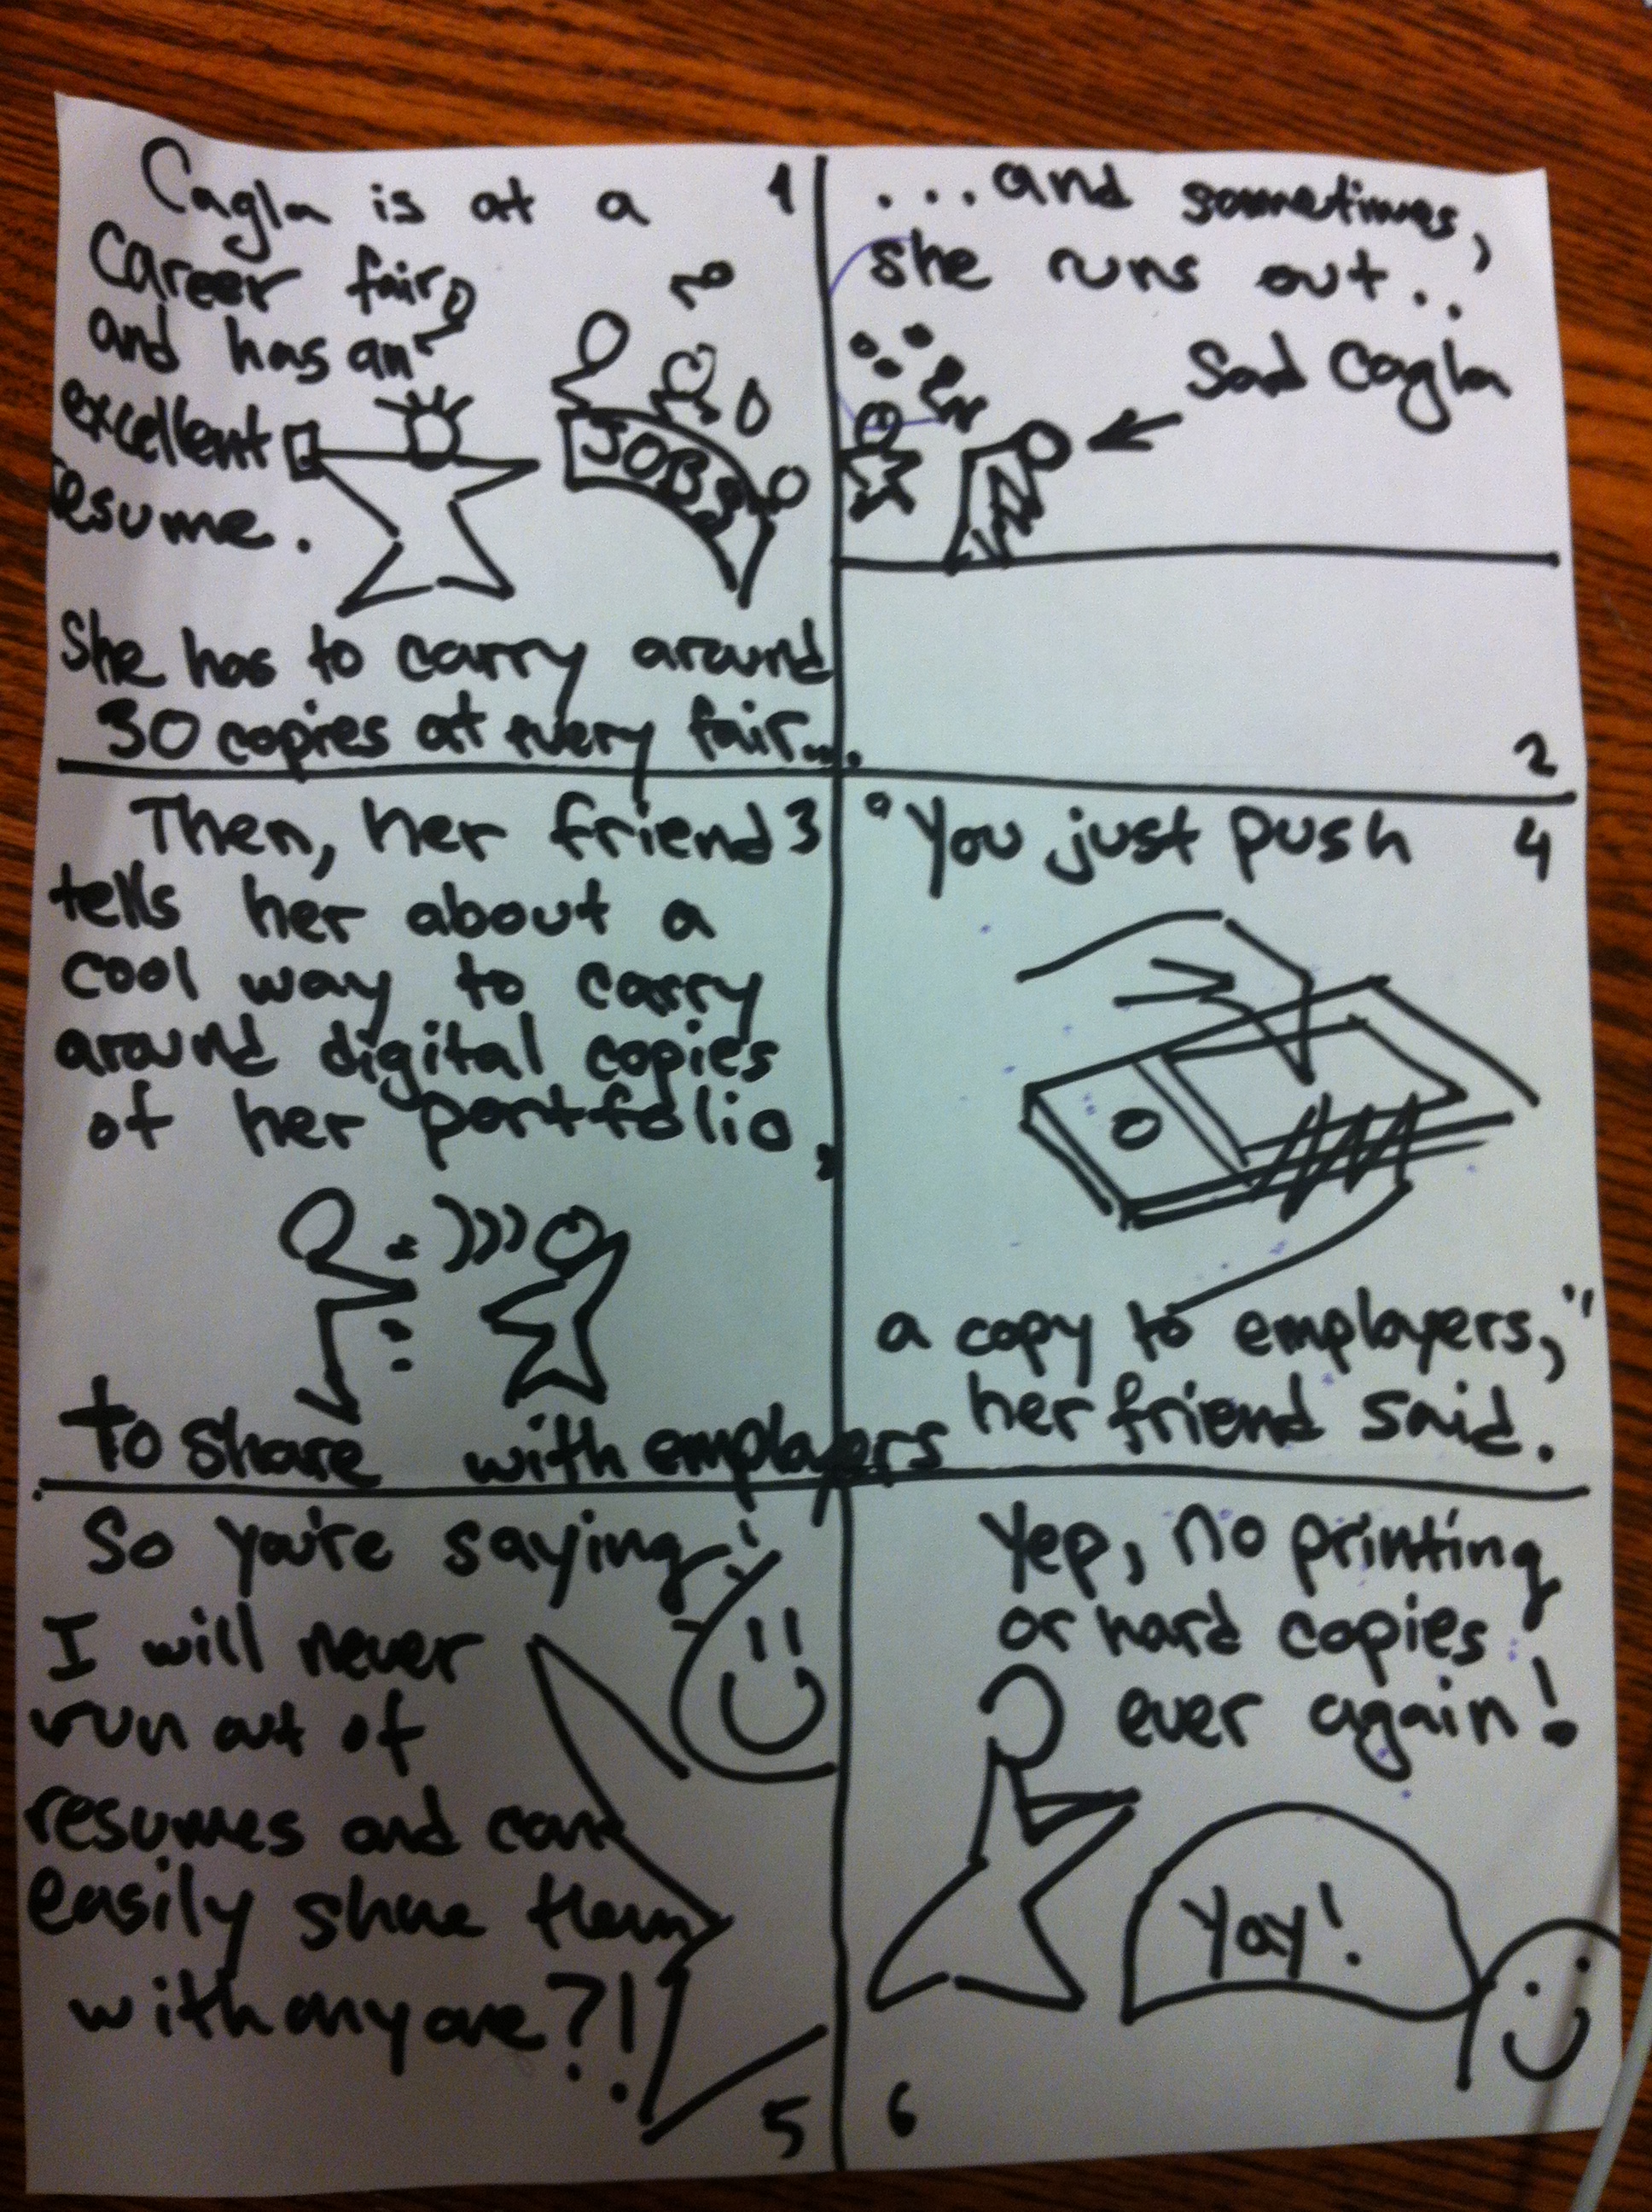 1
Cagla is at a
career fair
and has an
excellent
resume.
JOBS
She has to carry around
30 copies at every fair...
...and sometimes,
she runs out..
Sad Cagla
2
3
Then, her friend
tells her about a
cool way to carry
around digital copies
of her portfolio,
to share with employers
4
"You just push
a copy to employers,"
her friend said.
So you're saying
I will never
run out of
resumes and can
easily share them
with anyone?!
5
Yep, no printing
or hard copies
ever again!
Yay!
6